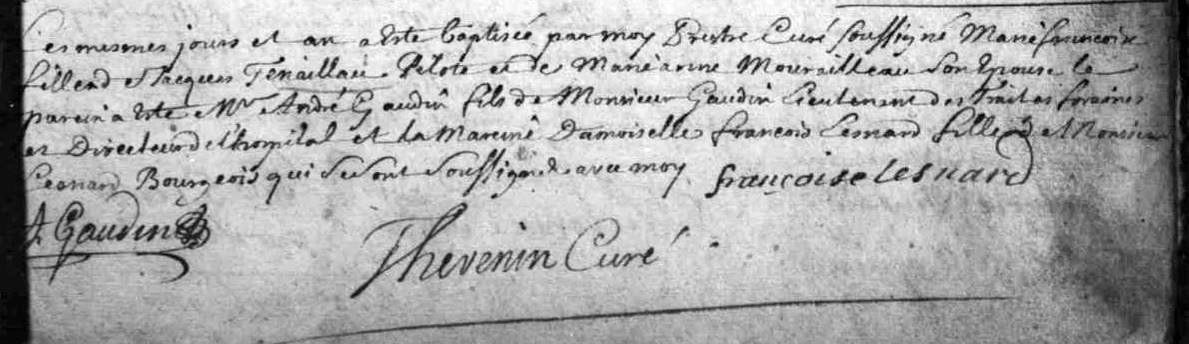 Les mesmes jours et an a este baptisée par moy Prestre Curé soussigné Marie francoise
fille de Jacques Tenaillau Pilote et de Marie anne Mourailleau son Epouse le
parein a este Mr André Gaudin fils de Monsieur Gaudin Lieutenant des Traites foraines
et Directeur de l'hopital et la Mareine Damoiselle francoise Lesnard fille de Monsieur
Leonard Bourgeois qui se sont soussignés avec moy francoise lesnard
A Gaudin
Thevenin Curé